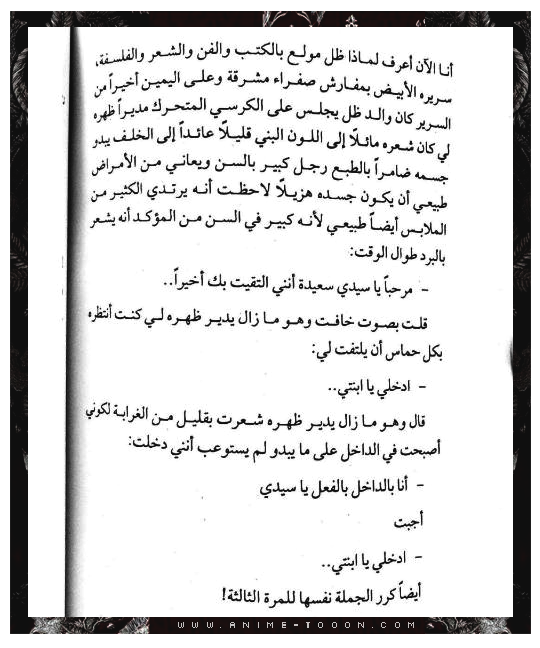 أنا الآن أعرف لماذا ظل مولع بالكتب والفن والشعر والفلسفة،
سريره الأبيض بمفارش صفراء مشرقة وعلى اليمين أخيراً من
السرير كان والد ظل يجلس على الكرسي المتحرك مديراً ظهره
لي كان شعره مائلًا إلى اللون البني قليلًا عائداً إلى الخلف يبدو
جسمه ضامراً بالطبع رجل كبير بالسن ويعاني من الأمراض
طبيعي أن يكون جسده هزيلًا لاحظت أنه يرتدي الكثير من
الملابس أيضاً طبيعي لأنه كبير في السن من المؤكد أنه يشعر
بالبرد طوال الوقت:
- مرحباً يا سيدي سعيدة أنني التقيت بك أخيراً..
قلت بصوت خافت وهو ما زال يدير ظهره لي كنت أنتظره
بكل حماس أن يلتفت لي:
- ادخلي يا ابنتي..
قال وهو ما زال يدير ظهره شعرت بقليل من الغرابة لكوني
أصبحت في الداخل على ما يبدو لم يستوعب أنني دخلت:
- أنا بالداخل بالفعل يا سيدي
أجبت
- ادخلي يا ابنتي..
أيضاً كرر الجملة نفسها للمرة الثالثة!
WWW.ANIME-TOOON.COM